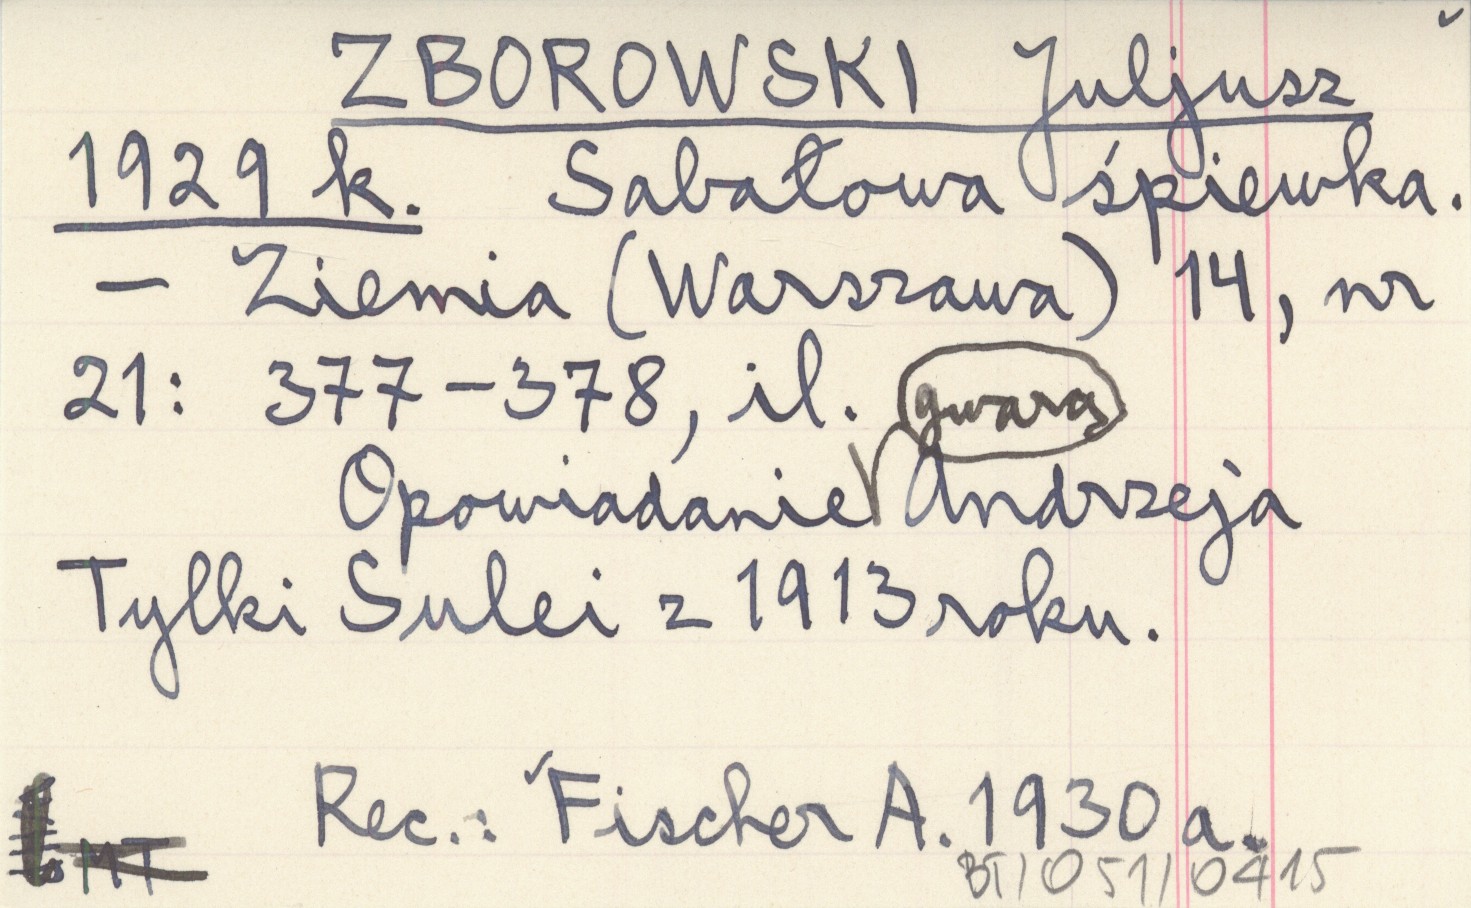 ZBOROWSKI Juljusz
1929 k. Sabałowa śpiewka.
— Ziemia (Warszawa) 14, nr
21: 377-378, il.
gwarą
Opowiadanie Andrzeja
Tylki Sulei z 1913 roku.
Rec.: Fischer A. 1930 a.
MT
BT/051/0415